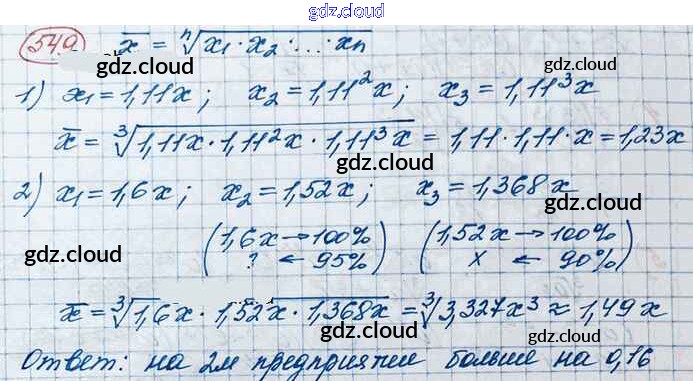 gdz.cloud
549 x̄ = ⁿ√x₁·x₂·...·xₙ
gdz.cloud gdz.cloud
1) x₁ = 1,11x; x₂ = 1,11²x; x₃ = 1,11³x
gdz.cloud
x̄ = ³√1,11x · 1,11²x · 1,11³x = 1,11 · 1,11 · x = 1,23x
gdz.cloud gdz.cloud
2) x₁ = 1,6x; x₂ = 1,52x; x₃ = 1,368x
gdz.cloud gdz.cloud
(1,6x → 100%) (1,52x → 100%)
gdz.cloud
(? ← 95%) (x ← 90%)
gdz.cloud gdz.cloud
x̄ = ³√1,6x · 1,52x · 1,368x = ³√3,327x³ ≈ 1,49x
gdz.cloud gdz.cloud
Ответ: на 2м предприятии больше на 0,16
gdz.cloud